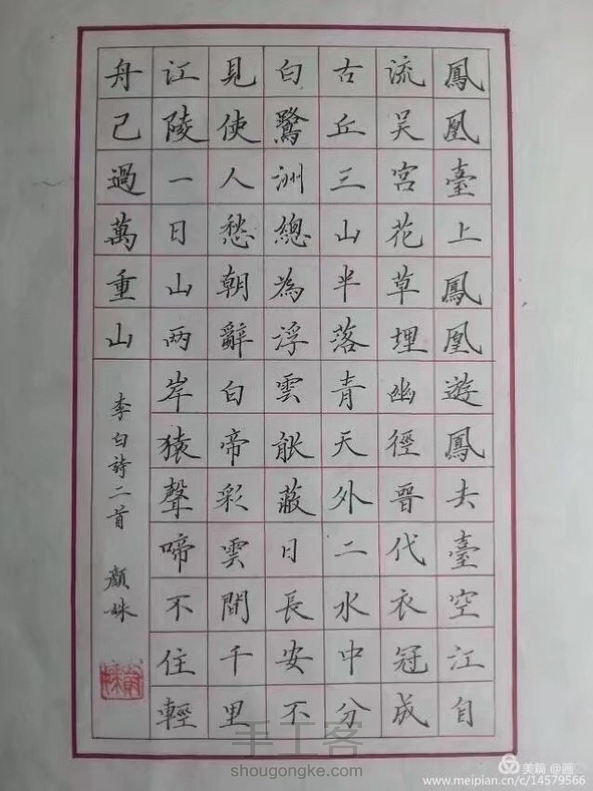 鳳凰臺上鳳凰遊鳳去臺空江自
流吴宮花草埋幽徑晉代衣冠成
古丘三山半落青天外二水中分
白鷺洲總為浮雲能蔽日長安不
見使人愁朝辭白帝彩雲間千里
江陵一日山两岸猿聲啼不住輕
舟己過萬重山
李白詩二首 顏姝
手工客
shougongke.com
美篇
www.meipian.cn/c/14579566